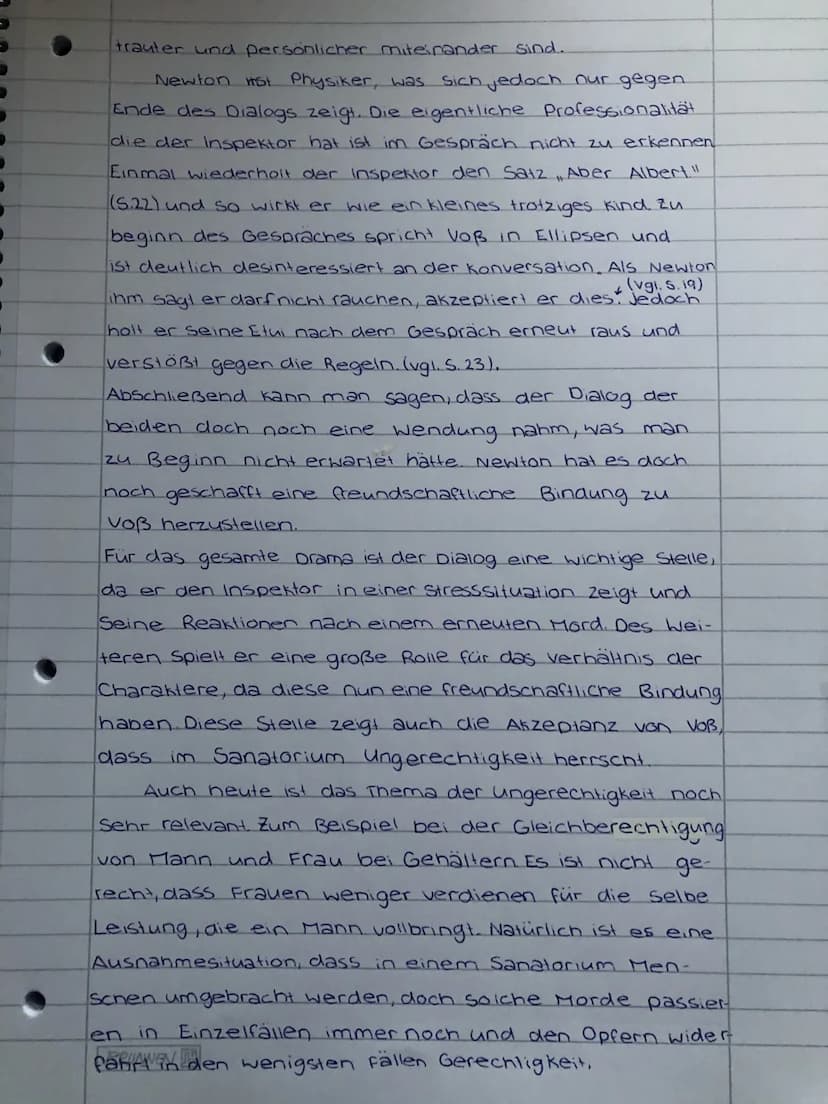 trauter und persönlicher miteinander sind.
Newton ist Physiker, was sich jedoch nur gegen
Ende des Dialogs zeigt. Die eigentliche Professionalität
die der Inspektor hat ist im Gespräch nicht zu erkennen
Einmal wiederholt der Inspektor den Satz „Aber Albert"
(S.22) und so wirkt er wie ein kleines trotziges Kind. Zu
beginn des Gespräches spricht Voß in Ellipsen und
ist deutlich desinteressiert an der Konversation. Als Newton
ihm sagt er darf nicht rauchen, akzeptiert er dies. (vgl. S. 19) Jedoch
holt er seine Etui nach dem Gespräch erneut raus und
verstößt gegen die Regeln. (vgl. S. 23).
Abschließend kann man sagen, dass der Dialog der
beiden doch noch eine Wendung nahm, was man
zu Beginn nicht erwartet hätte. Newton hat es doch
noch geschafft eine freundschaftliche Bindung zu
Voß herzustellen.
Für das gesamte Drama ist der Dialog eine wichtige Stelle,
da er den Inspektor in einer Stresssituation zeigt und
Seine Reaktionen nach einem erneuten Mord. Des Wei-
teren spielt er eine große Rolle für das Verhältnis der
Charaktere, da diese nun eine freundschaftliche Bindung
haben. Diese Stelle zeigt auch die Akzeptanz von Voß,
dass im Sanatorium Ungerechtigkeit herrscht.
Auch heute ist das Thema der Ungerechtigkeit noch
sehr relevant. Zum Beispiel bei der Gleichberechtigung
von Mann und Frau bei Gehältern. Es ist nicht ge-
recht, dass Frauen weniger verdienen für die selbe
Leistung, die ein Mann vollbringt. Natürlich ist es eine
Ausnahmesituation, dass in einem Sanatorium Men-
schen umgebracht werden, doch solche Morde passier-
en in Einzelfällen immer noch und den Opfern wider-
fährt in den wenigsten Fällen Gerechtigkeit.